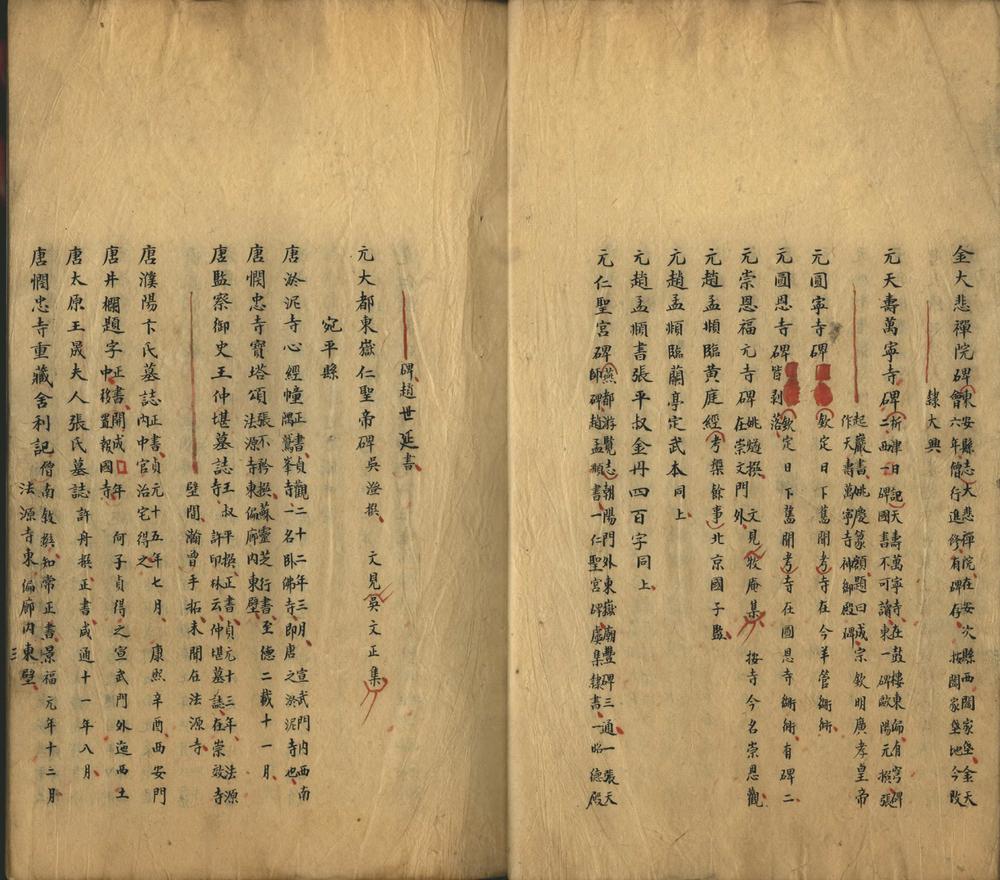 金大悲禪院碑 東安縣志大悲禪院在安次縣西閻家堡金天會六年僧行進修有碑存 按閻家堡地今改
隸大興
元天壽萬寧寺碑 析津日記天壽萬寧寺在鼓樓東偏有穹碑二西一碑國書不可讀東一碑歐陽元撰張
起巖書姚慶篆額題曰成宗欽明廣孝皇帝作天壽萬寧寺神御殿碑
元圓寧寺碑 欽定日下舊聞考寺在今羊管衚衕
元圓恩寺碑 皆剥落 欽定日下舊聞考寺在圓恩寺衚衕有碑二
元崇恩福元寺碑 姚燧撰 文見牧庵集 在崇文門外 按寺今名崇恩觀
元趙孟頫臨黄庭經 考槃餘事北京國子監
元趙孟頫臨蘭亭定武本 同上
元趙孟頫書張平叔金丹四百字 同上
元仁聖宮碑 燕都游覽志朝陽門外東嶽廟豐碑三通一張天師碑趙孟頫書一仁聖宮碑虞集隸書一昭德殿
碑趙世延書
元大都東嶽仁聖帝碑 吳澄撰 文見吳文正集
宛平縣
唐淤泥寺心經幢 正書貞觀二十二年三月 宣武門内西南隅鷲峯寺一名卧佛寺即唐之淤泥寺也
唐憫忠寺寶塔頌 張不矜撰蘇靈芝行書至德二載十一月 法源寺東偏廊内東壁
唐監察御史王仲堪墓誌 王叔平撰正書貞元十三年 法源寺 許印林云仲堪墓誌在崇效寺
壁間瀚曾手拓來聞在法源寺
唐濮陽卞氏墓誌 正書貞元十五年七月 康熙辛酉西安門内中官治宅得之
唐井欄題字 正書開成□年 何子貞得之宣武門外迤西土中移置報國寺
唐太原王晟夫人張氏墓誌 許舟撰正書咸通十一年八月
唐憫忠寺重藏舍利記 僧南敘撰知常正書景福元年十二月 法源寺東偏廊内東壁
三